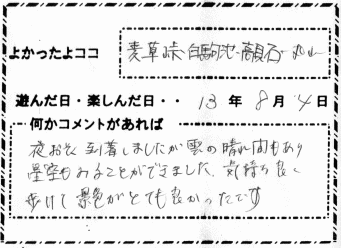 よかったよココ 麦草峠-白駒池-高見石-丸山
遊んだ日・楽しんだ日・・ 13 年 8 月 4 日
何かコメントがあれば
夜おそく到着しましたが雲の晴れ間もあり
星空もみることができました。気持ち良く
歩けて景色がとても良かったです